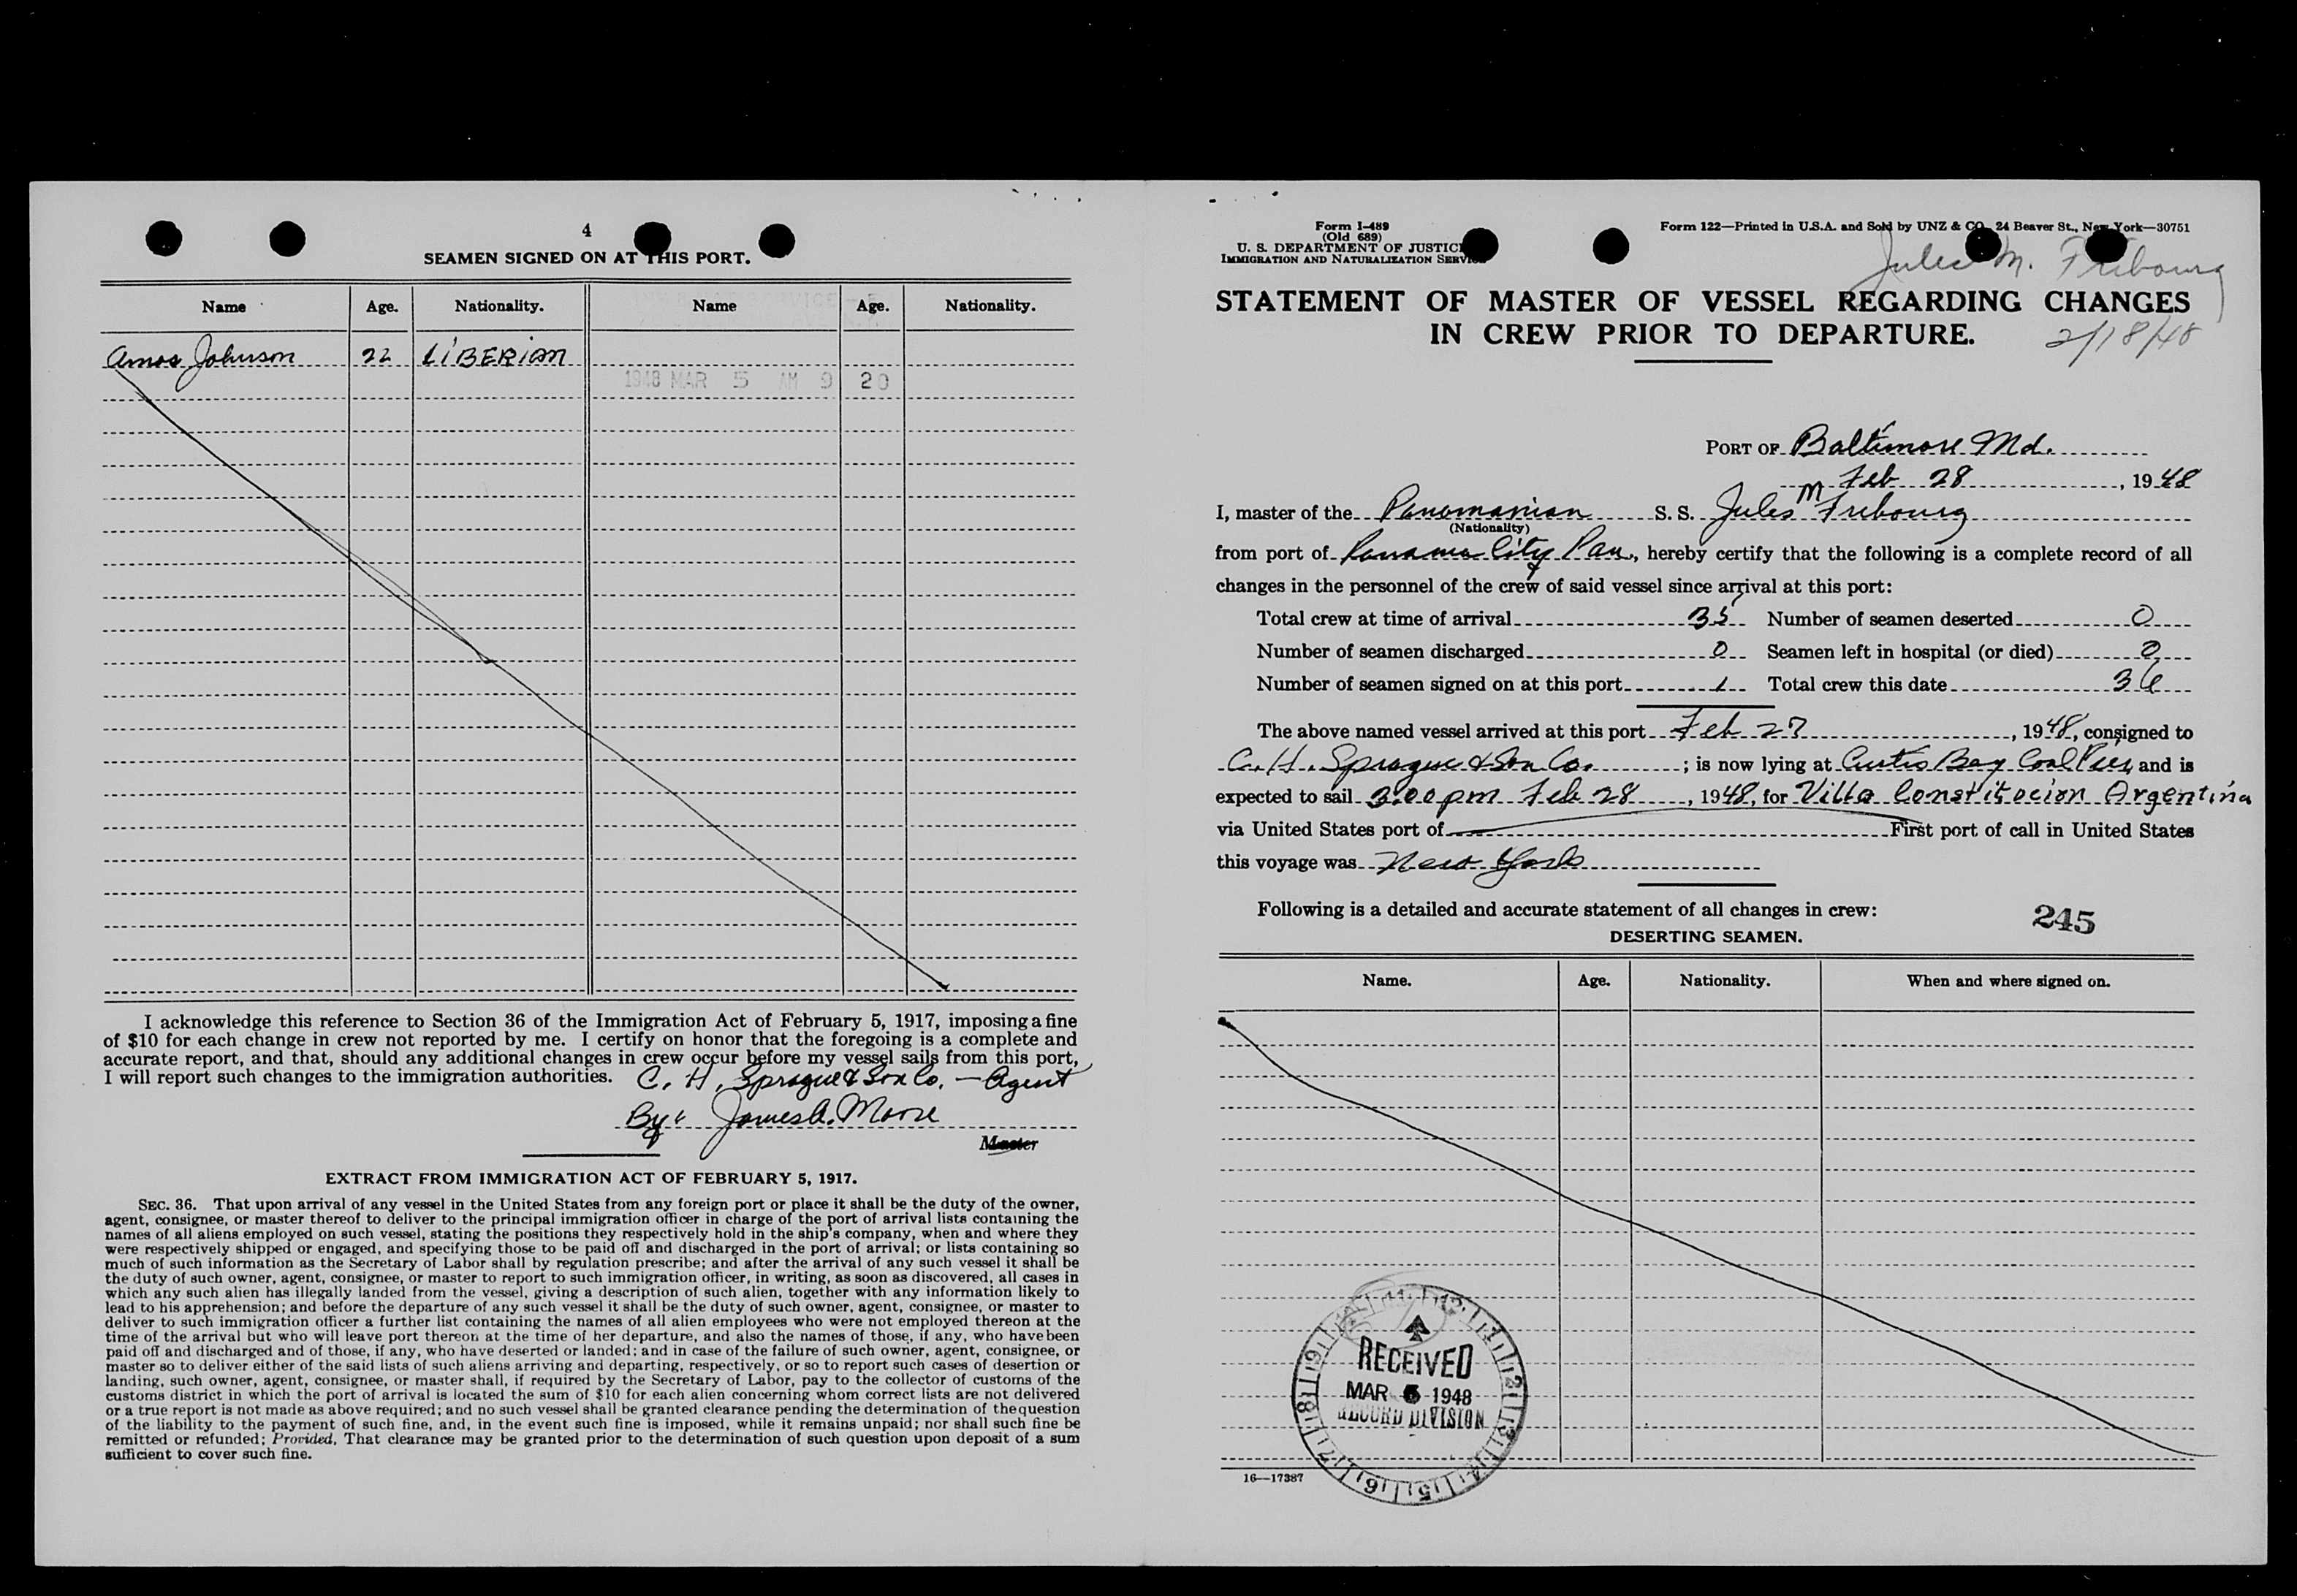 4
SEAMEN SIGNED ON AT THIS PORT.
Name Age. Nationality. Name Age. Nationality.
Amos Johnson 22 LIBERIAN
1948 MAR 5 AM 9 20
I acknowledge this reference to Section 36 of the Immigration Act of February 5, 1917, imposing a fine
of $10 for each change in crew not reported by me. I certify on honor that the foregoing is a complete and
accurate report, and that, should any additional changes in crew occur before my vessel sails from this port,
I will report such changes to the immigration authorities. C. H. Sprague & Son Co. — Agent
By: James A. Moore
Master
EXTRACT FROM IMMIGRATION ACT OF FEBRUARY 5, 1917.
SEC. 36. That upon arrival of any vessel in the United States from any foreign port or place it shall be the duty of the owner,
agent, consignee, or master thereof to deliver to the principal immigration officer in charge of the port of arrival lists containing the
names of all aliens employed on such vessel, stating the positions they respectively hold in the ship's company, when and where they
were respectively shipped or engaged, and specifying those to be paid off and discharged in the port of arrival; or lists containing so
much of such information as the Secretary of Labor shall by regulation prescribe; and after the arrival of any such vessel it shall be
the duty of such owner, agent, consignee, or master to report to such immigration officer, in writing, as soon as discovered, all cases in
which any such alien has illegally landed from the vessel, giving a description of such alien, together with any information likely to
lead to his apprehension; and before the departure of any such vessel it shall be the duty of such owner, agent, consignee, or master to
deliver to such immigration officer a further list containing the names of all alien employees who were not employed thereon at the
time of the arrival but who will leave port thereon at the time of her departure, and also the names of those, if any, who have been
paid off and discharged and of those, if any, who have deserted or landed; and in case of the failure of such owner, agent, consignee, or
master so to deliver either of the said lists of such aliens arriving and departing, respectively, or so to report such cases of desertion or
landing, such owner, agent, consignee, or master shall, if required by the Secretary of Labor, pay to the collector of customs of the
customs district in which the port of arrival is located the sum of $10 for each alien concerning whom correct lists are not delivered
or a true report is not made as above required; and no such vessel shall be granted clearance pending the determination of the question
of the liability to the payment of such fine, and, in the event such fine is imposed, while it remains unpaid; nor shall such fine be
remitted or refunded; Provided, That clearance may be granted prior to the determination of such question upon deposit of a sum
sufficient to cover such fine.
Form I-489
(Old 689)
U. S. DEPARTMENT OF JUSTICE
IMMIGRATION AND NATURALIZATION SERVICE
Form 122—Printed in U.S.A. and Sold by UNZ & CO., 24 Beaver St., New York—30751
Jules M. Fribourg
STATEMENT OF MASTER OF VESSEL REGARDING CHANGES
IN CREW PRIOR TO DEPARTURE.
2/18/48
PORT OF Baltimore Md.
Feb 28, 1948
I, master of the Panamanian S. S. Jules M Fribourg
(Nationality)
from port of Panama City Pan, hereby certify that the following is a complete record of all
changes in the personnel of the crew of said vessel since arrival at this port:
Total crew at time of arrival 35 Number of seamen deserted 0
Number of seamen discharged 0 Seamen left in hospital (or died) 0
Number of seamen signed on at this port 1 Total crew this date 36
The above named vessel arrived at this port Feb 27, 1948, consigned to
C. H. Sprague & Son Co. ; is now lying at Curtis Bay Coal Pier, and is
expected to sail 3:00 pm Feb 28, 1948, for Villa Constitucion Argentina
via United States port of First port of call in United States
this voyage was New York
Following is a detailed and accurate statement of all changes in crew:
245
DESERTING SEAMEN.
Name. Age. Nationality. When and where signed on.
RECEIVED
MAR 5 1948
RECORD DIVISION
16—17387